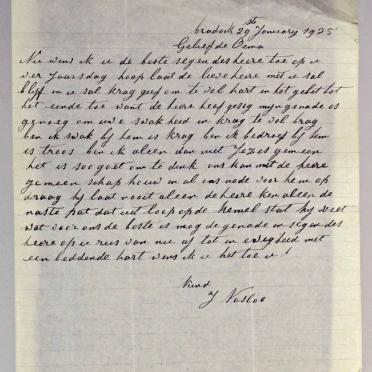 Cradock 29ste January 1925
Geliefde Oema
Nu wens ik u de beste segen des heere toe op u
ver Jaarsdag hoop laat de lieve heere met u sal
blyf in u sal krag geef om te vol hart in het gelof tot
het einde toe want de heere heef geseg myn genade is
genoeg om uwe swakheid in krag te vol brag
ben ik swak by hem is krag ben ik bedroef by hem
is troos ben ik alleen dan met Jezus gemeen
het is soo goet om te dink ons kan met de heere
gemeenschap houw in al ons node voor hem op
draag hy laat nooit alleen de heere ken alleen de
naste pat dat uit loop op de Hemel stat hy weet
wat voor ons de beste is mog de genade in segen des
heere op u rus van nu af tot in ewigheid met
een biddende hart wens ik u het toe u!
Vriend
J Vosloo